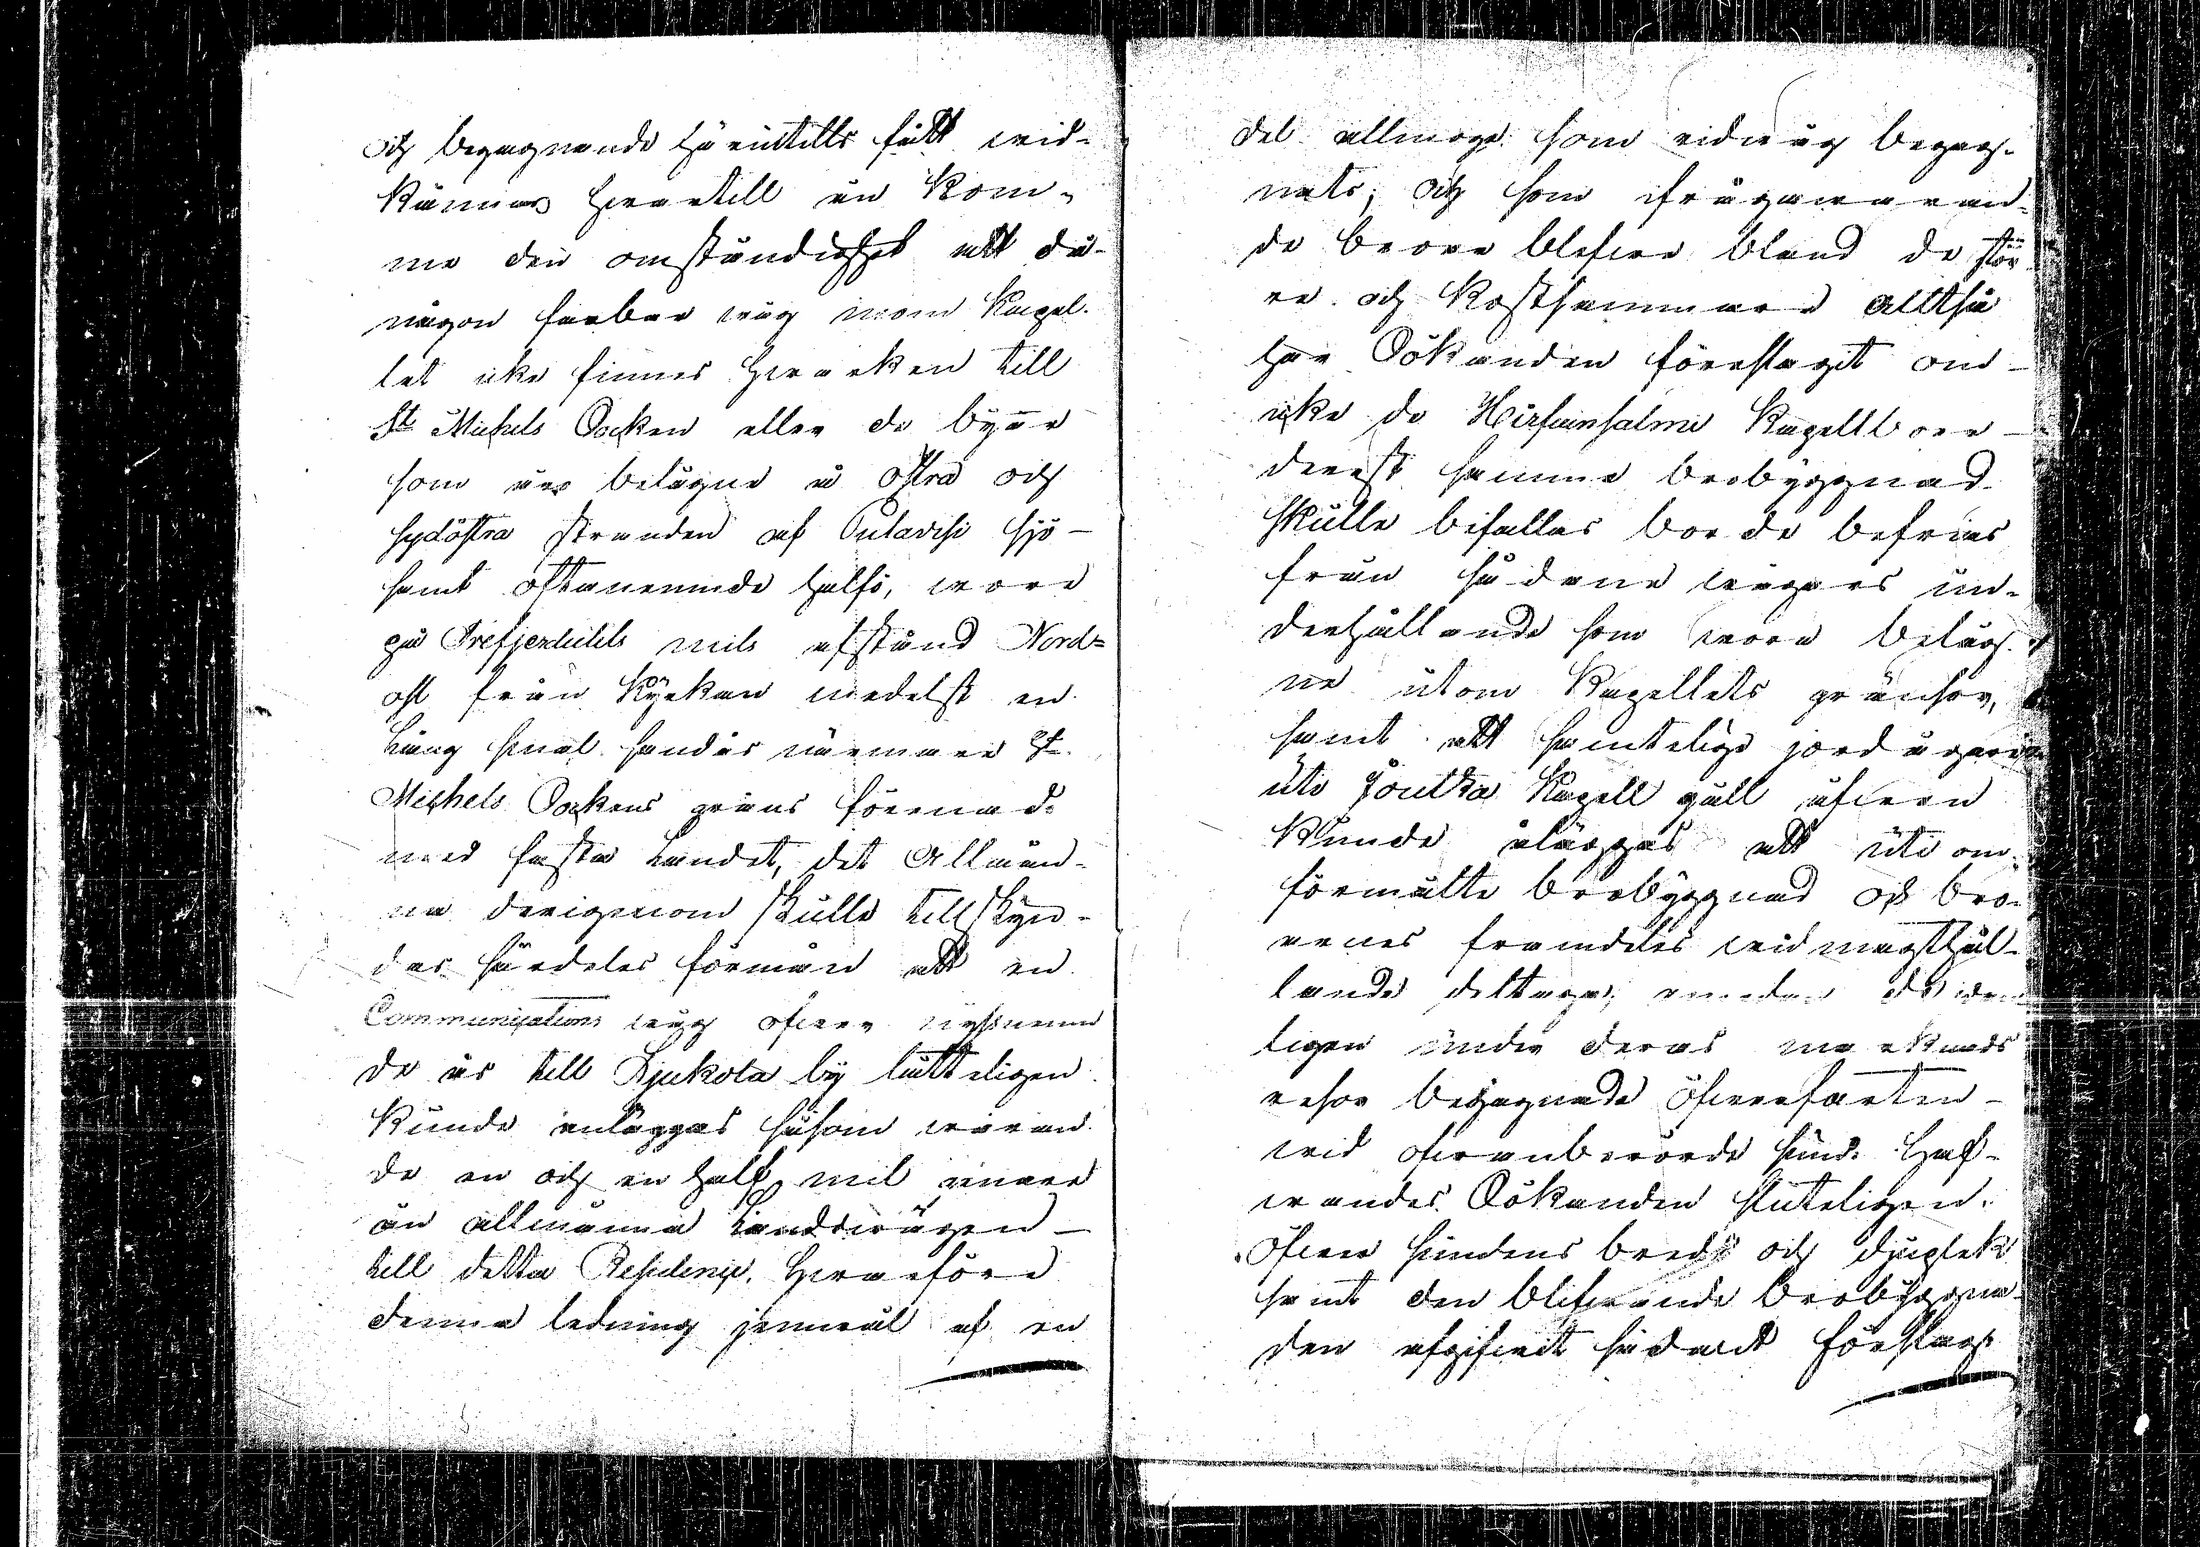 och begagnande härintills fått wid-
kännas hwartill än kom-
me den omständighet att då
någon farbar wäg inom Kapel-
let icke finnes hwarken till
St Michels Socken eller de byar
som äro belägne å östra och
sydöstra stranden af Pulavesi sjö -
samt ofvannemnde halfö, wore
på Trefjerdedels mils afstånd Nord=
ost från Kyrkan medelst en
Lång smal landås närmare St.
Michels Sockens gräns förenad
med fasta Landet, det Allmän-
na derigenom skulle tillskyn-
das särdeles förmån att en
Communications wäg öfwer nyssnemn
de ås till Djukola by lätteligen
kunde anläggas såsom waran-
de en och en half mil genare
än allmänna Landswägen -
till detta Residence. Hwarföre
denna ledning jemwäl af en
del allmoge som ridwäg begag-
nats; och som ifrågawaran-
de broar blefwe bland de stör
re och kostsammare Alltså
har Sökanden föreslagit om -
icke de Hirfvensalmi Kapellboer -
derest samma brobyggnad
skulle bifallas borde befrias
från sådane wägars un-
derhållande som wore beläg-
ne utom Kapellets gränsor,
samt att samtelige jordägare
uti Joutza Kapell gäll äfwen
kunde åläggas att uti om-
förmälte brobyggnad och bro-
arnes framdeles widmagthål-
lande deltaga; emedan de wan
ligen under deras marknads
resor begagnade öfwerfarten -
wid ofwanberörde sund. Haf-
wandes Sökanden sluteligen
öfwer sundens bredd och djuplek
samt den blifwande brobyggna-
den afgifwit sådant förslag